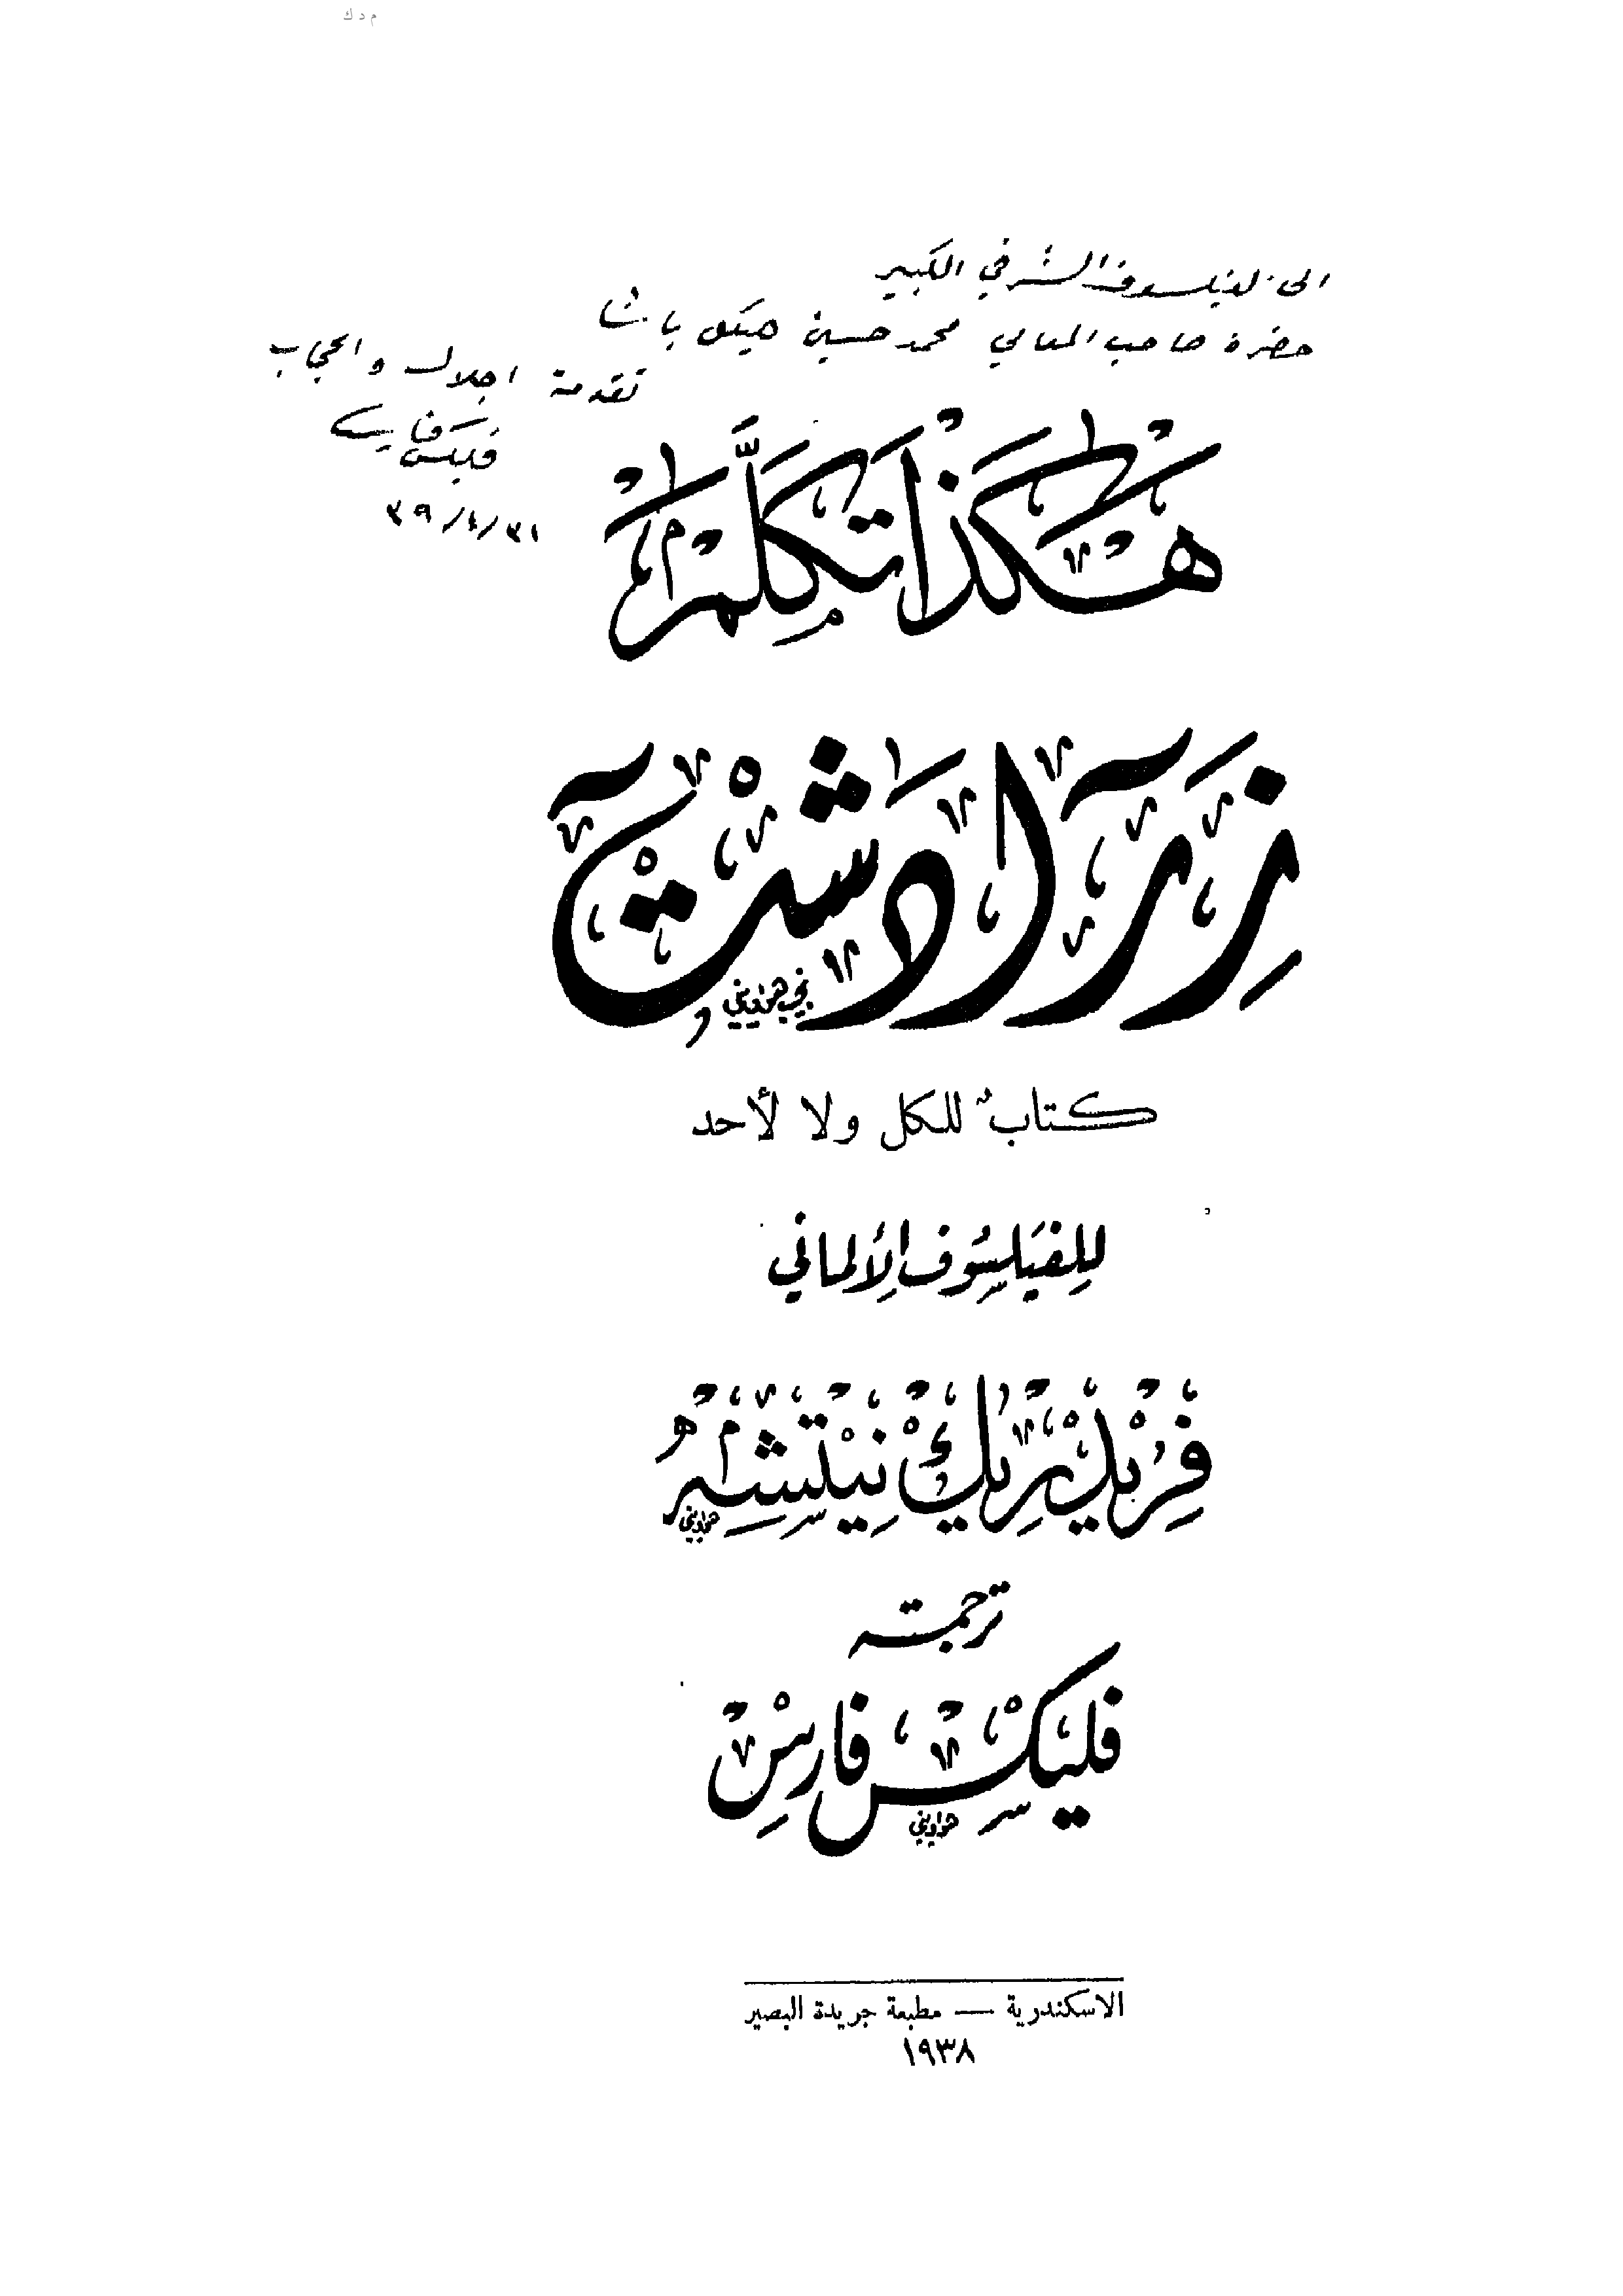 م د ك
الى الفيلسوف الشرقي الكبير
حضرة صاحب المعالي محمد حسين هيكل باشا
تقدمة اجلال واعجاب
فليكس فارس
٣٩/٤/٢١
هٰكَذَا تَكَلَّمَ
زَرَادَشْت
نجيب هواويني
كتابٌ للكل ولا لأحد
للفيلسوف الألماني
فريدريك نيتشه
هواويني
ترجمة
فليكس فارس
هواويني
الاسكندرية — مطبعة جريدة البصير
١٩٣٨